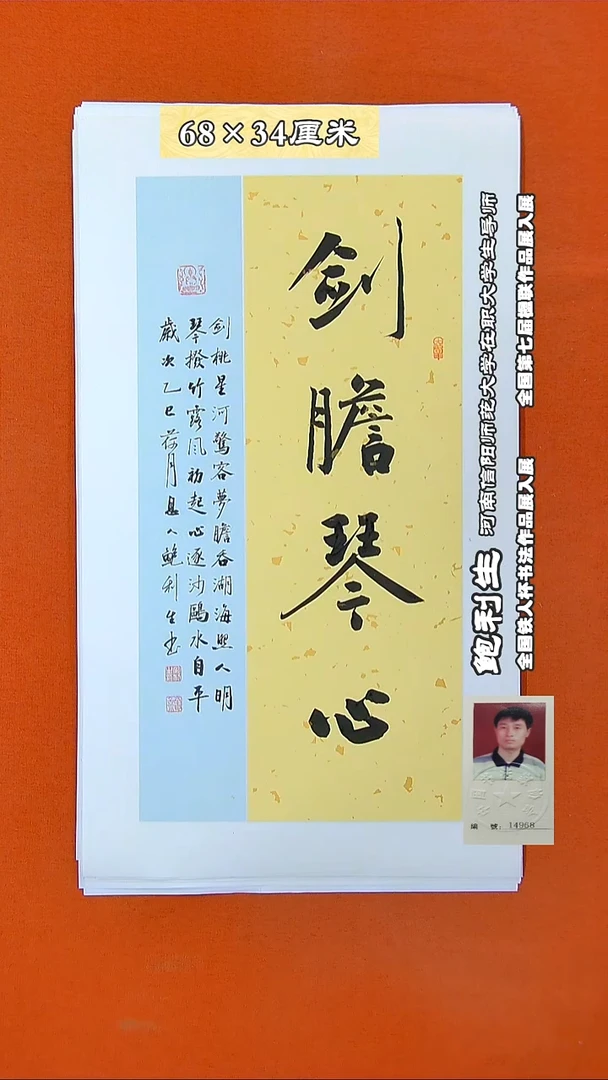 68×34厘米
剑膽琴心
剑桃星河驚客夢膽吞湖海照人明
琴撥竹露风初起心逐沙鷗水自平
歲次乙巳荷月息人鲍利生书
鲍利生 河南信阳师院大学在职大学生导师
全国铁人杯书法作品展入展
全国第七届楹联作品展入展
編 號：14968